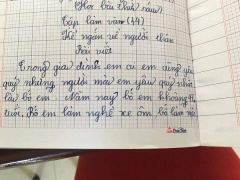 (Học bài thứ năm)
Tập làm văn (14)
Kể ngắn về người thân
Bài viết
Trong gia đình em ai em cũng yêu
quý nhưng người mà em yêu quý nhất
là bố em. Năm nay bố em khoảng 42
tuổi. Bố em làm nghề xe ôm bố làm